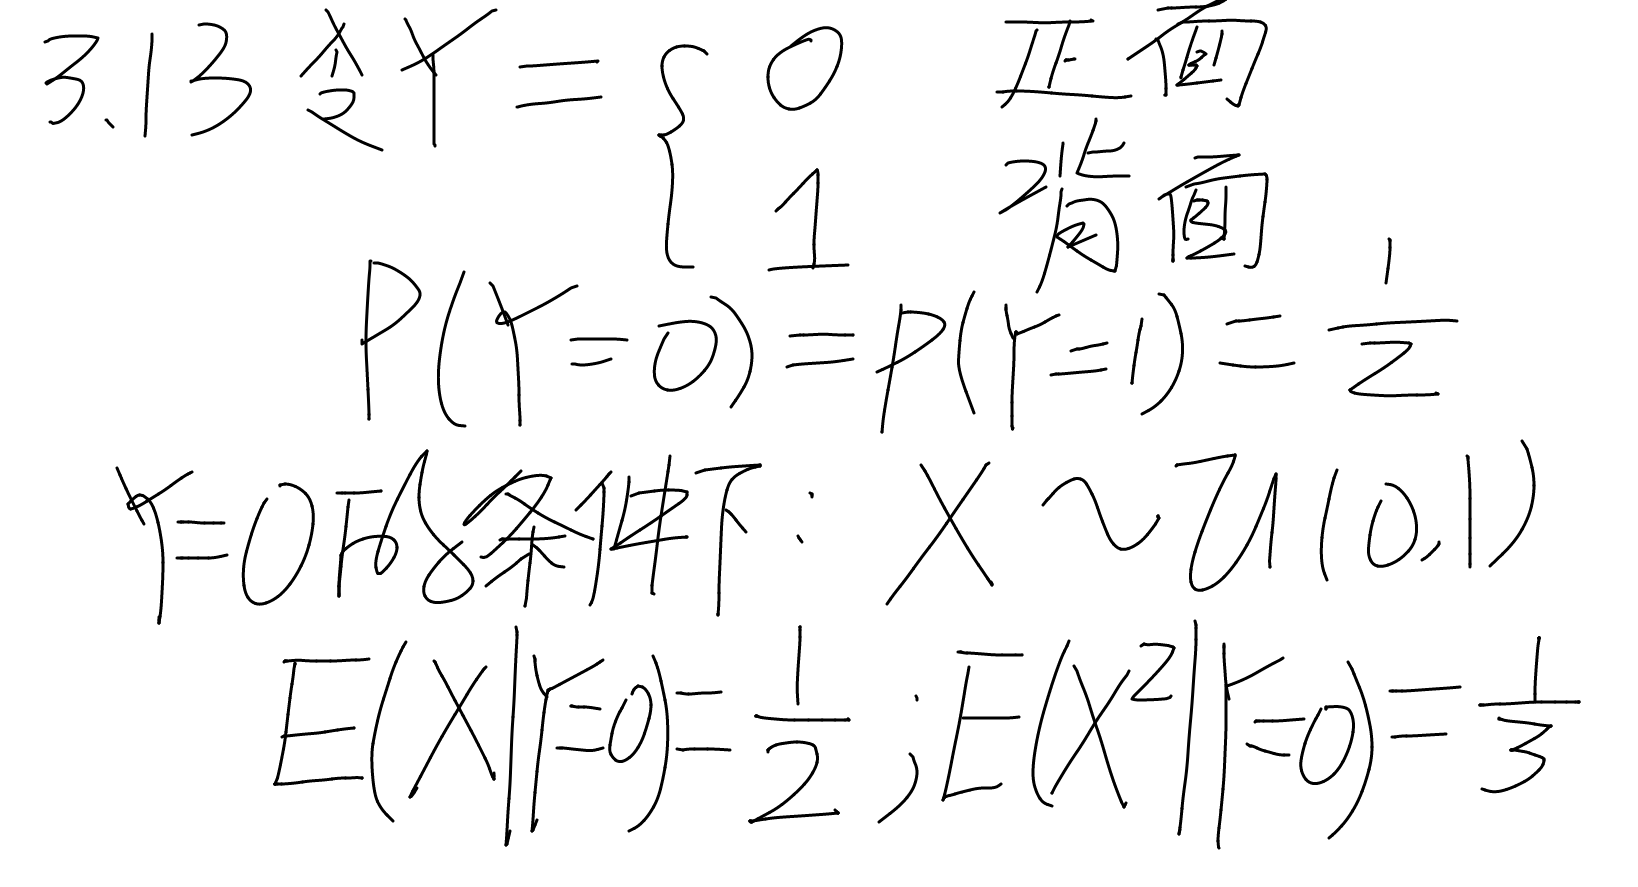 3.13 令Y = { 0 正面
1 背面
P(Y=0) = P(Y=1) = 1/2
Y=0的条件下: X ~ U(0,1)
E(X|Y=0) = 1/2 ; E(X²|Y=0) = 1/3